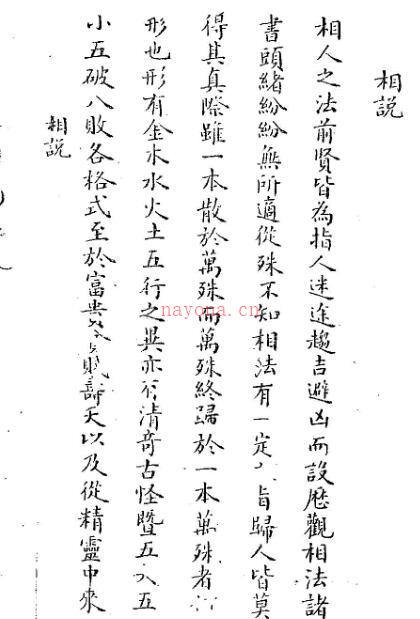 相説
相人之法前賢皆為指人迷途趨吉避凶而設歷觀相法諸
書頭緒紛紛無所適從殊不知相法有一定之旨歸人皆莫
得其真際雖一本散於萬殊而萬殊終歸於一本萬殊者
形也形有金木水火土五行之異亦有清奇古怪暨五大五
小五破八敗各格式至於富貴賤壽夭以及從精靈中來
相説
nayona.cn